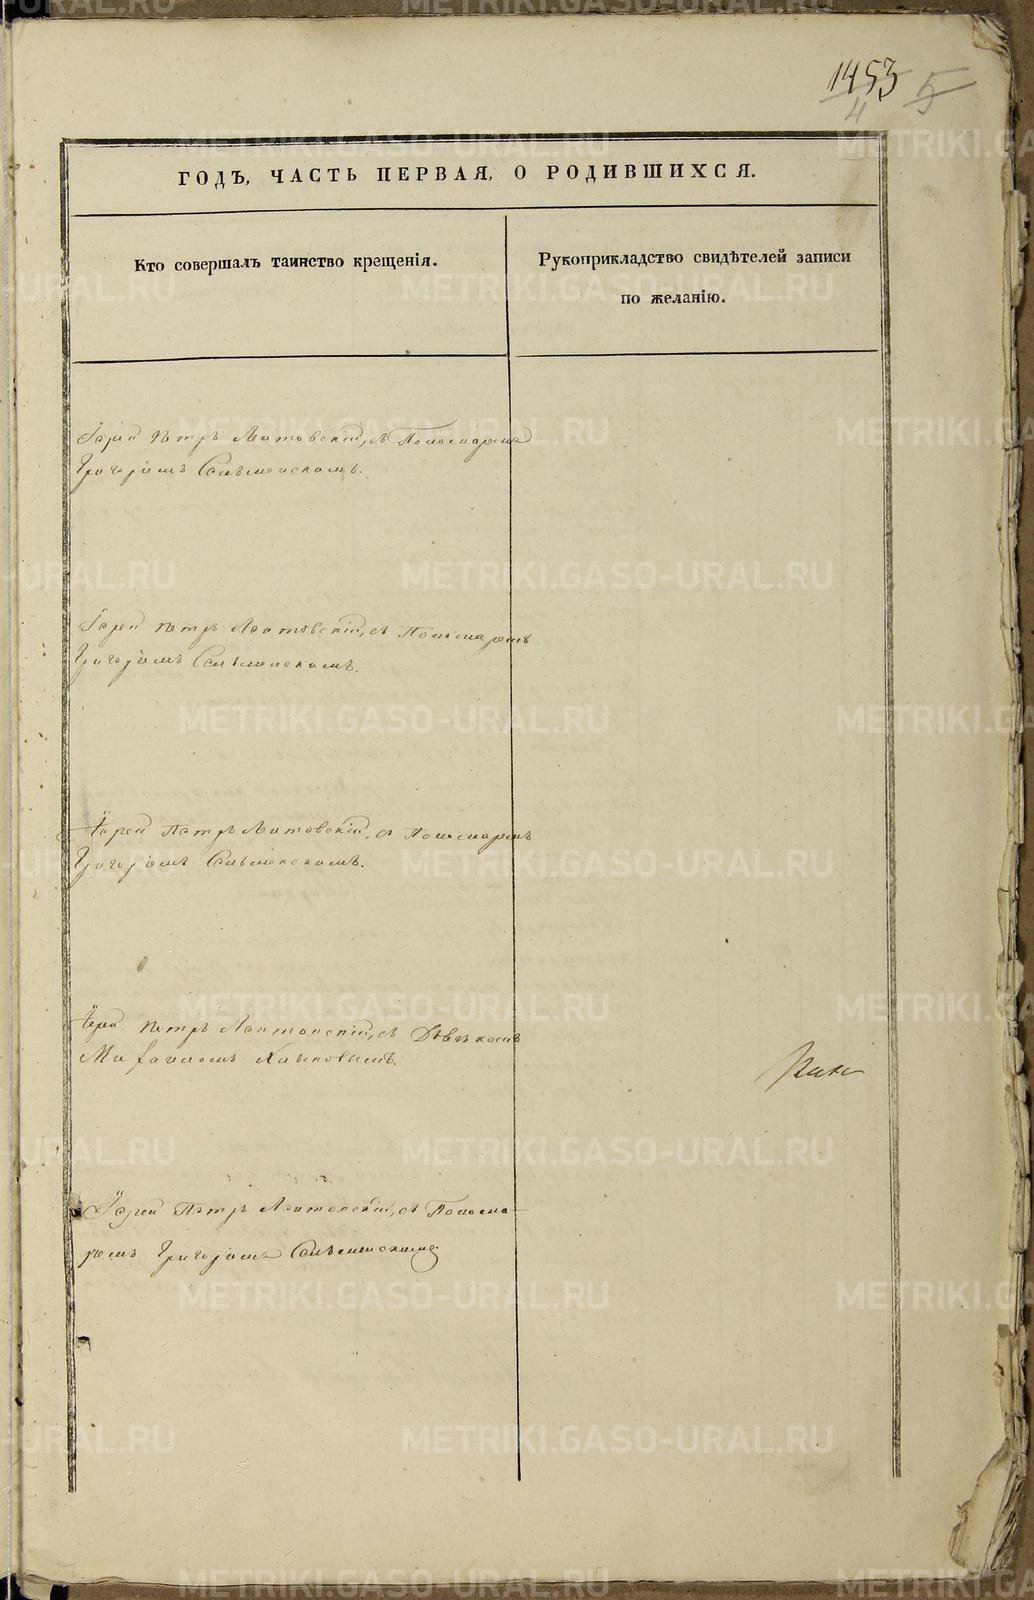 1453 5
4
ГОДЪ, ЧАСТЬ ПЕРВАЯ, О РОДИВШИХСЯ.
Кто совершалъ таинство крещенія.
Рукоприкладство свидѣтелей записи
по желанію.
Іерей Петръ Литовскій, съ Пономаремъ
Григоріемъ
Іерей Петръ Литовскій, съ Пономаремъ
Григоріемъ
Іерей Петръ Литовскій, съ Пономаремъ
Григоріемъ
Іерей Петръ Литовскій, съ
Михаиломъ
Іерей Петръ Литовскій, съ Понома-
ремъ Григоріемъ
METRIKI.GASO-URAL.RU